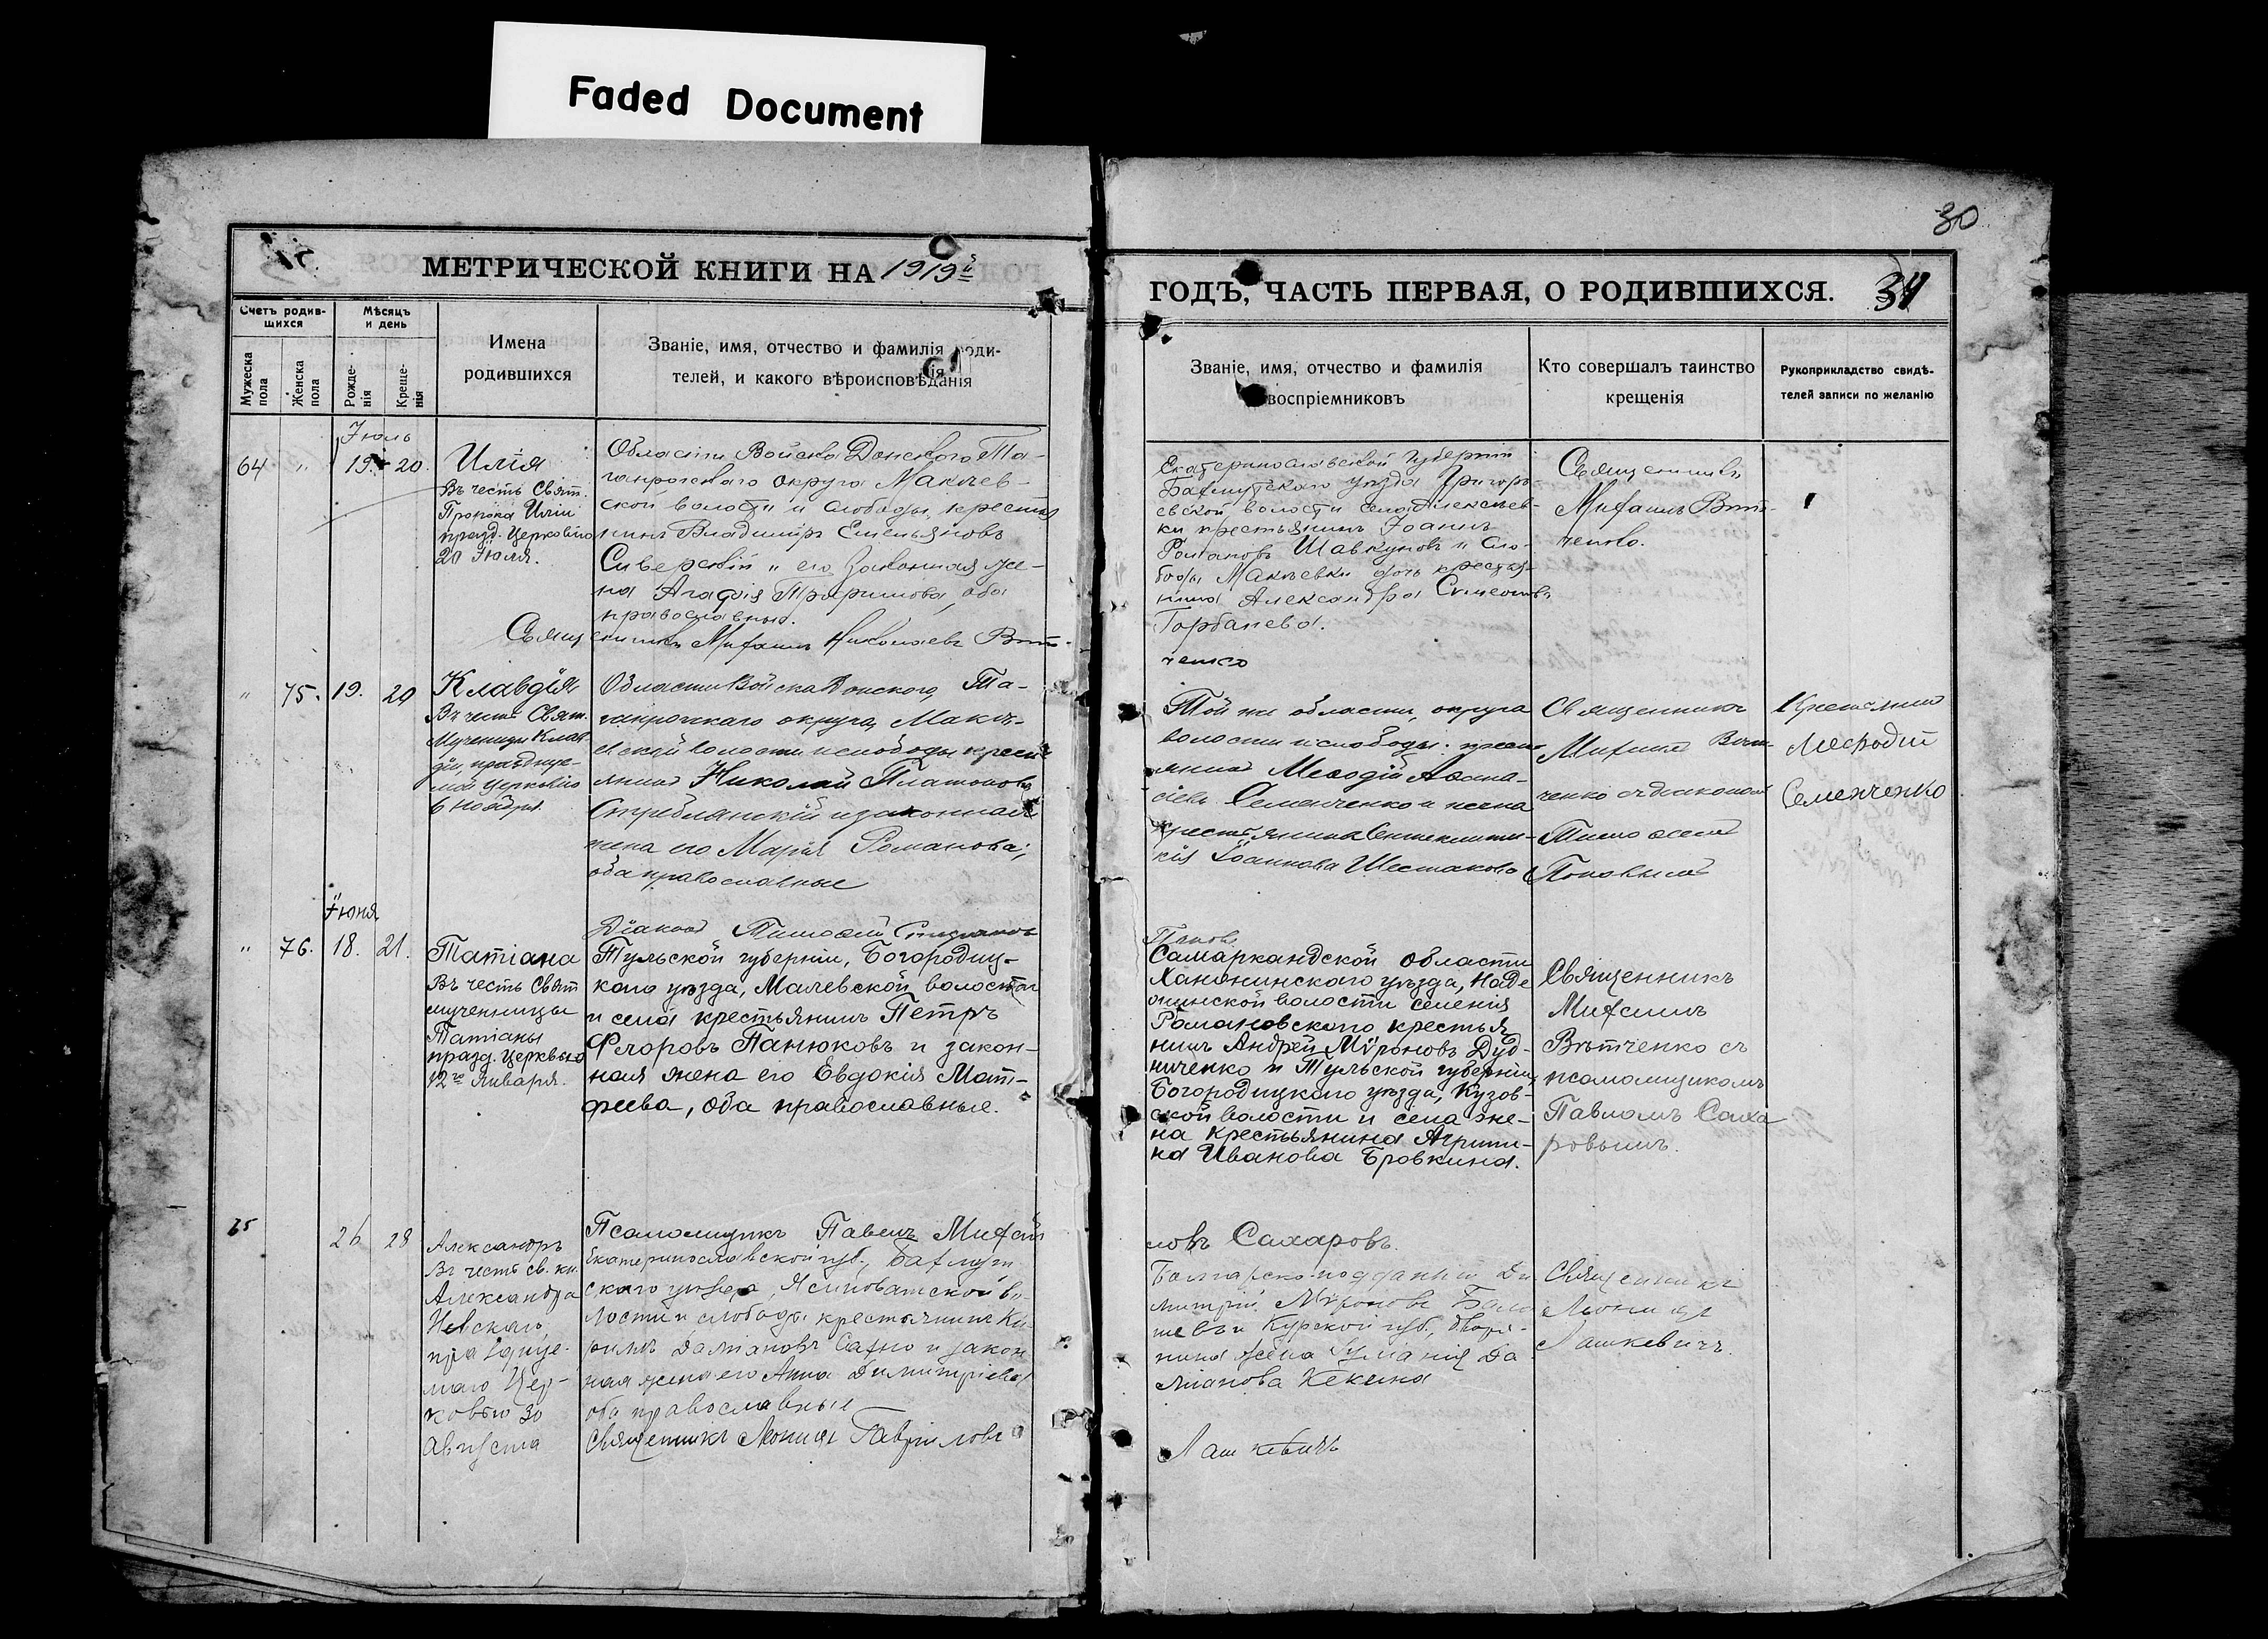 Faded Document
30
МЕТРИЧЕСКОЙ КНИГИ НА 1919й
ГОДЪ, ЧАСТЬ ПЕРВАЯ, О РОДИВШИХСЯ. 31
Счетъ родив-
шихся
Мѣсяцъ
и день
Мужеска
пола
Женска
пола
Рожде-
нія
Креще-
нія
Имена
родившихся
Званіе, имя, отчество и фамилія роди-
телей, и какого вѣроисповѣданія
Званіе, имя, отчество и фамилія
воспріемниковъ
Кто совершалъ таинство
крещенія
Рукоприкладство свидѣ-
телей записи по желанію
Іюль
64 " 19. 20.
Илія
Въ честь Свят.
Пророка Иліи
празд. Церковію
20 Іюля.
Области Войска Донского Та-
ганрогскаго округа Макѣев-
ской волости и слободы крестья
нинъ Владиміръ Емельяновъ
Сиверскій и его законная же-
на Агафія Трофимова, оба
православные.
Священникъ Михаилъ Николаевъ Вѣт-
ченко
Екатеринославской губерніи
Бахмутскаго уѣзда Григорь
евской волости села Алексѣев-
ки крестьянинъ Іоаннъ
Романовъ Шавкуновъ и сло-
боды Макѣевки дочь крестья-
нина Александра Симеонова
Горбанева.
Священникъ
Михаилъ Вѣт-
ченко.
" 75. 19. 20
Клавдія
Въ честь Свят.
Мученицы Клав-
діи, празднуе-
мой Церковію
6 Ноября
Области Войска Донского, Та-
ганрогскаго округа, Макѣ-
евской волости и слободы крестья
янинъ Николай Платоновъ
Стреблянскій и законная
жена его Марія Романова;
оба православные
Діаконъ Тимофей Стефановъ
Поповъ
Той же области, округа
волости и слободы крест
янинъ Меѳодій Аѳана-
сіевъ Семенченко и жена
крестьянина
Іоаннова Шестакова
Священникъ
Михаилъ Вѣт-
ченко съ діакономъ
Тимоѳеемъ
Поповымъ
Крестьянинъ
Мефодій
Семенченко
Іюня
" 76. 18. 21.
Татіана
Въ честь Свят
мученицы
Татіаны
празд. Церквью
12го Января.
Тульской губерніи, Богородиц-
каго уѣзда, Малевской волости
и села крестьянинъ Петръ
Флоровъ Панюковъ и закон-
ная жена его Евдокія Мат-
феева, оба православные.
Самаркандской области
уѣзда, Наде
жинской волости селенія
Романовского крестья
нинъ Андрей Мѵроновъ Дуд-
ниченко и Тульской губерніи,
Богородицкаго уѣзда, Кузов-
ской волости и села же-
на крестьянина Агрипи-
на Иванова Бровкина.
Священникъ
Михаилъ
Вѣтченко съ
псаломщикомъ
Павломъ Саха
ровымъ.
Псаломщикъ Павелъ Михай
ловъ Сахаровъ.
65 26 28
Александръ
Въ честь св. кн.
Александра
Невскаго,
празднуе-
маго Цер-
ковью 30
Августа
Екатеринославской губ., Бахмут
скаго уѣзда, Ясиноватской во-
лости и слободы крестьянинъ Ки
риллъ Даміановъ Сахно и закон
ная жена его Анна Димитріева
оба православные
Священникъ Леонидъ Гавріиловъ
Лашкевичъ
Болгарско-подданный Ди
митрій Мѵроновъ Бала
шевъ и Курской губ., дворя-
нина жена Да
міанова Кекина
Священникъ
Леонидъ
Лашкевичъ.